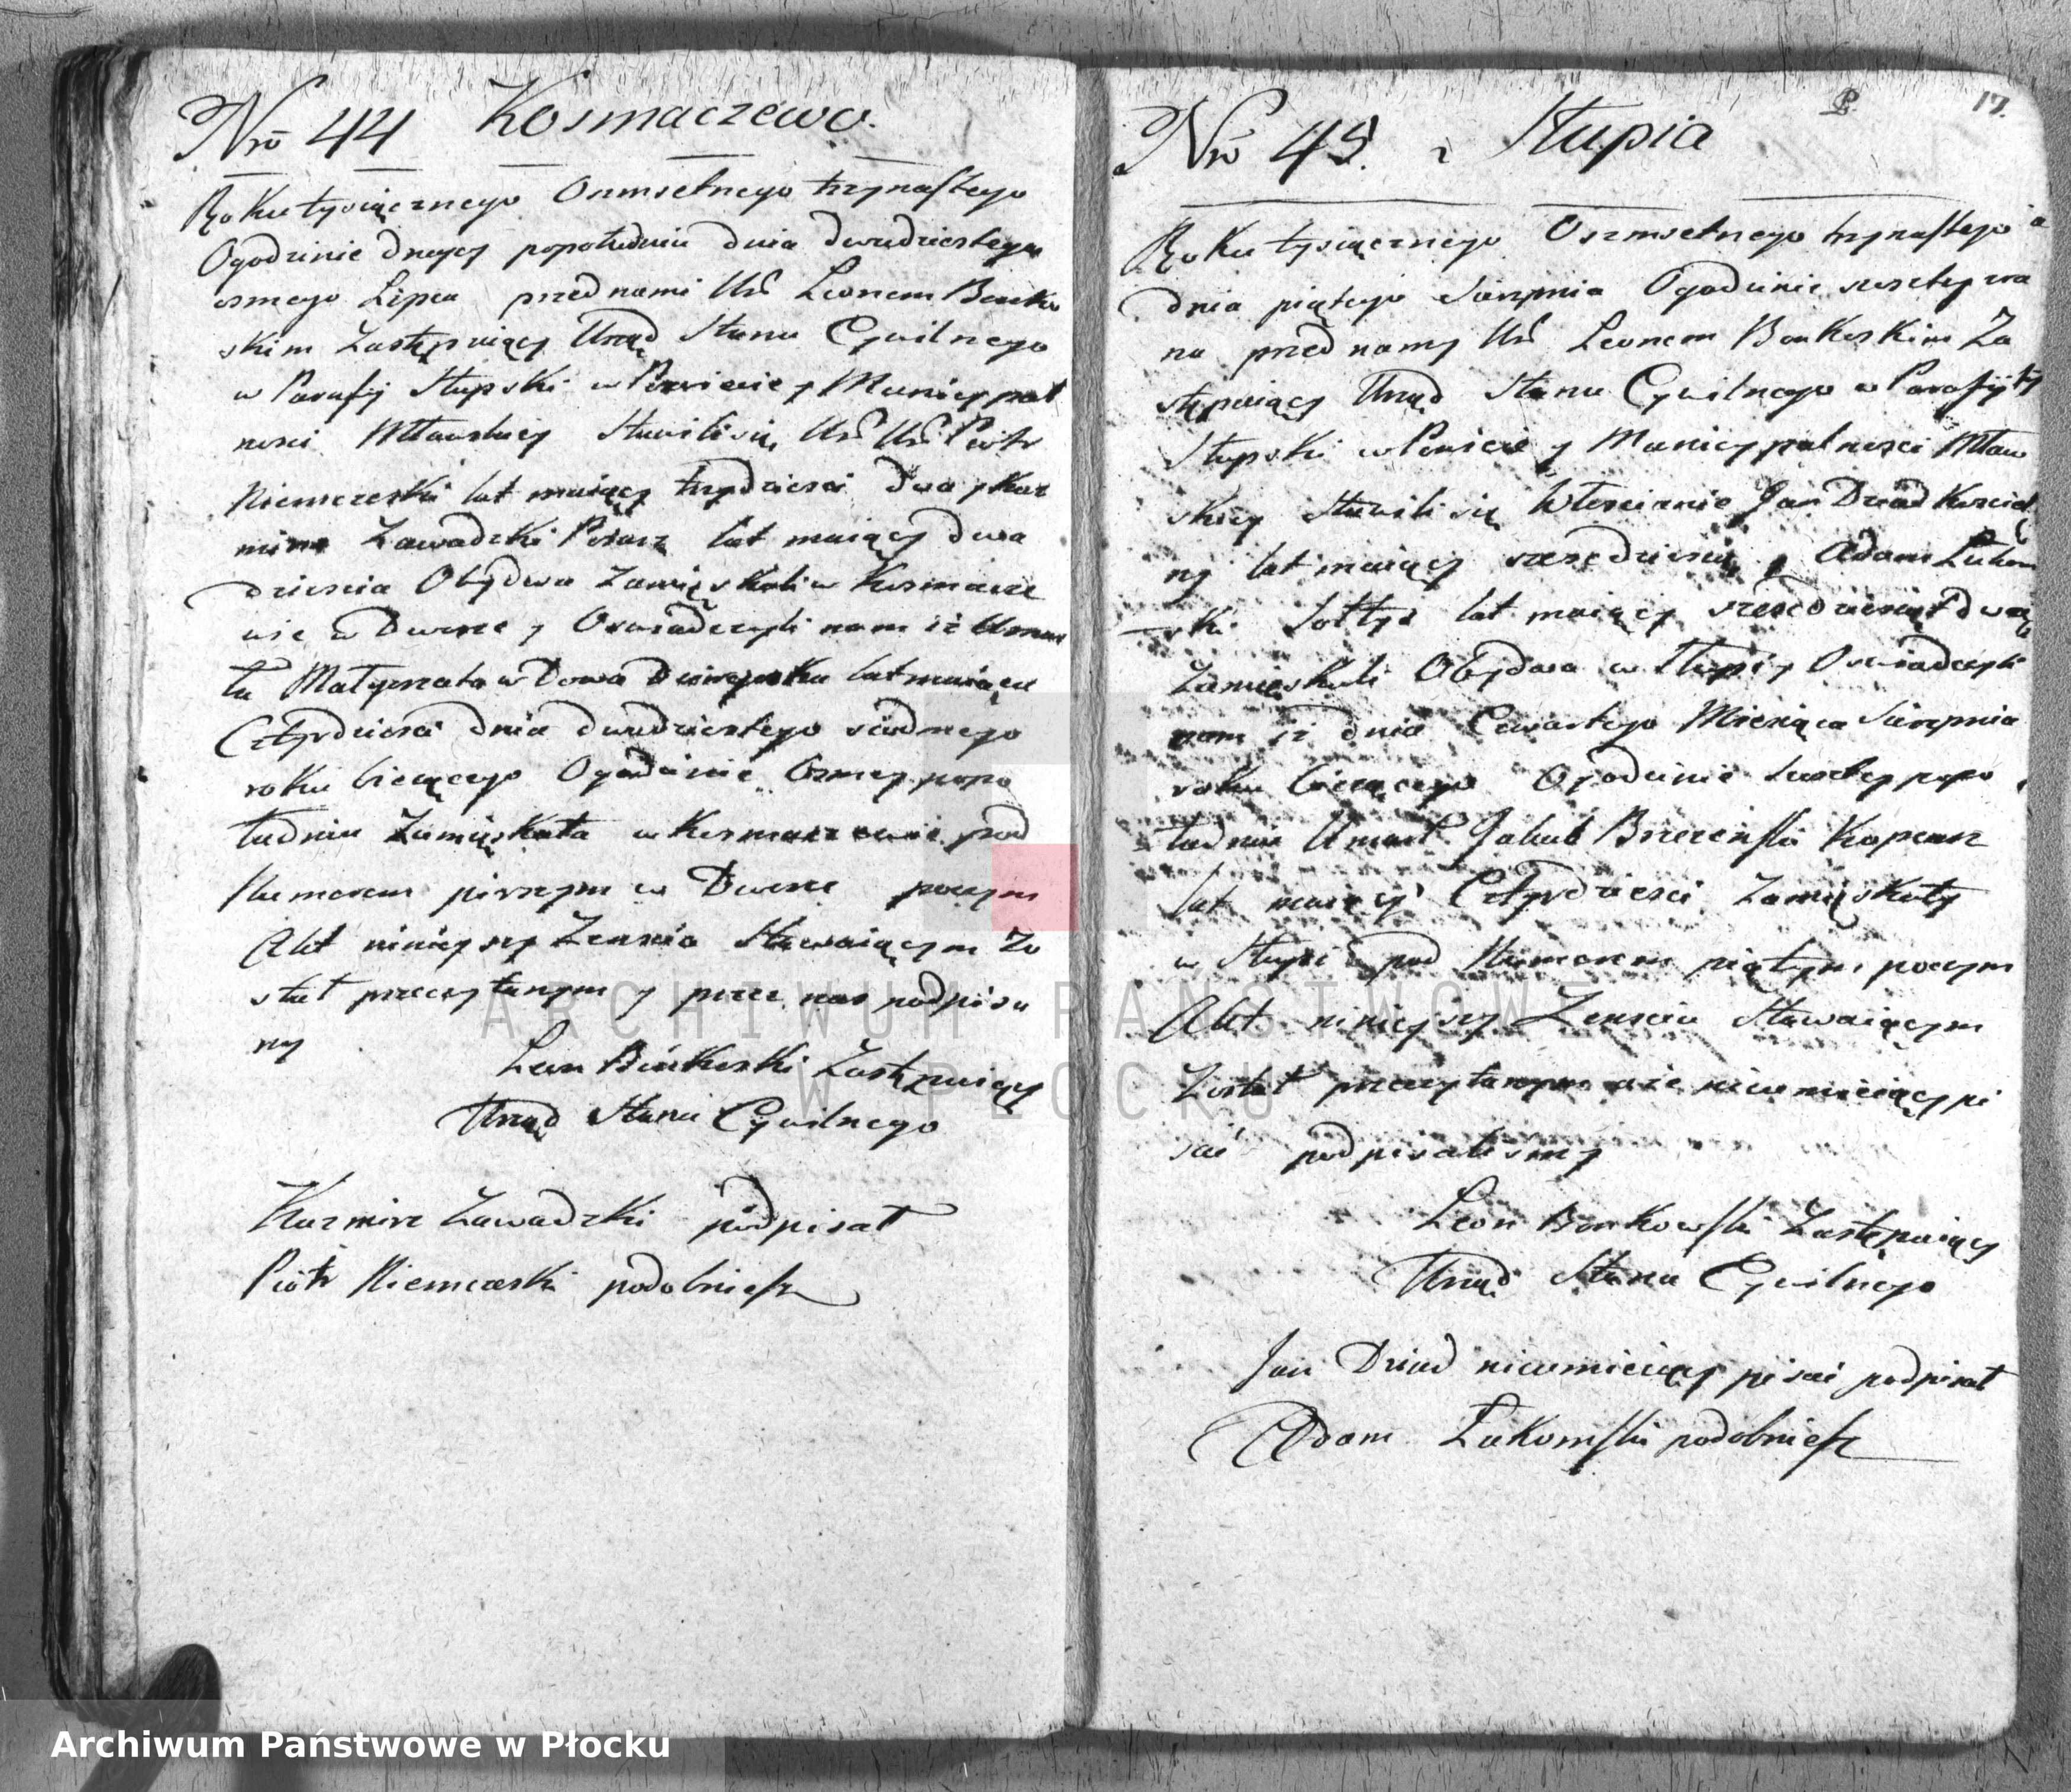 Nrō 44 Kosmaczewo.
Roku tysiącznego Osmsetnego trzynastego
Ogodzinie drugey popołudniu dnia dwudziestego
osmego Lipca przed nami Ur. Leonem Bonkow
skim Zastępuiący Urząd Stanu Cywilnego
w Parafij Słupski w Powiecie y Municypal
nosci Mławskiey Stawili się Ur. Ur. Piotr
Niemczeski lat maiący trzydziesci dwa y Kaz
mirz Zawadzki Pisarz lat maiący dwa
dziescia Obydwa zamięszkali w Kosmacze
wie w Dworze y Oswiadczyli nam iż Umar
ła Małgorzata w Dowa lat maiąca
Cztyrdziesci dnia dwudziestego siodmego
roku bieżącego Ogodzinie Osmey popo
łudniu Zamięszkała w Kosmaczewie pod
Numerem pirszym w Dworze poczym
Akt ninieyszy Zenscia Stawaiącym Zo
stał przeczytanym y przez nas podpisa
ny
Leon Bońkoski Zastępuiący
Urząd Stanu Cywilnego
Kazmirz Zawadzki podpisał
Piotr Niemczeski podobniesz
17.
Nrō 45. Słupia
Roku tysiącznego Oszmsetnego trzynastego
dnia piątego Sierpnia Ogodzinie szostey zra
na przed namy Ur. Leonem Bonkoskim Za
stępuiący Urząd Stanu Cywilnego w Parafij
Słupski w Powiecie y Municypalnosci Mław
skiey Stawili się Włoscianie Jan Dziad Kosciel
ny lat maiący szesdziesiąt y Adam Łukom
ski Sołtys lat maiący szescdziesiąt dwa
Zamięszkali Obydwa w Słupi y Oswiadczyli
nam iż dnia Czwartego Miesiąca Sierpnia
roku bieżącego Ogodzinie szostey popo
łudniu Umarł Jakub Brzezeński Kopcarz
lat maiący Cztyrdziesci Zamięszkały
w Słupi pod Numerem piątym poczym
Akt ninieyszy Zenscia Stawaiącym
Został przeczytanym a że nieumieiący pi
sać podpisalismy
Leon Bonkowski Zastępuiący
Urząd Stanu Cywilnego
Jan Dziad nieumieiący pisać podpisał
Adam Łukomski podobniesz
ARCHIWUM PAŃSTWOWE
W PŁOCKU
Archiwum Państwowe w Płocku